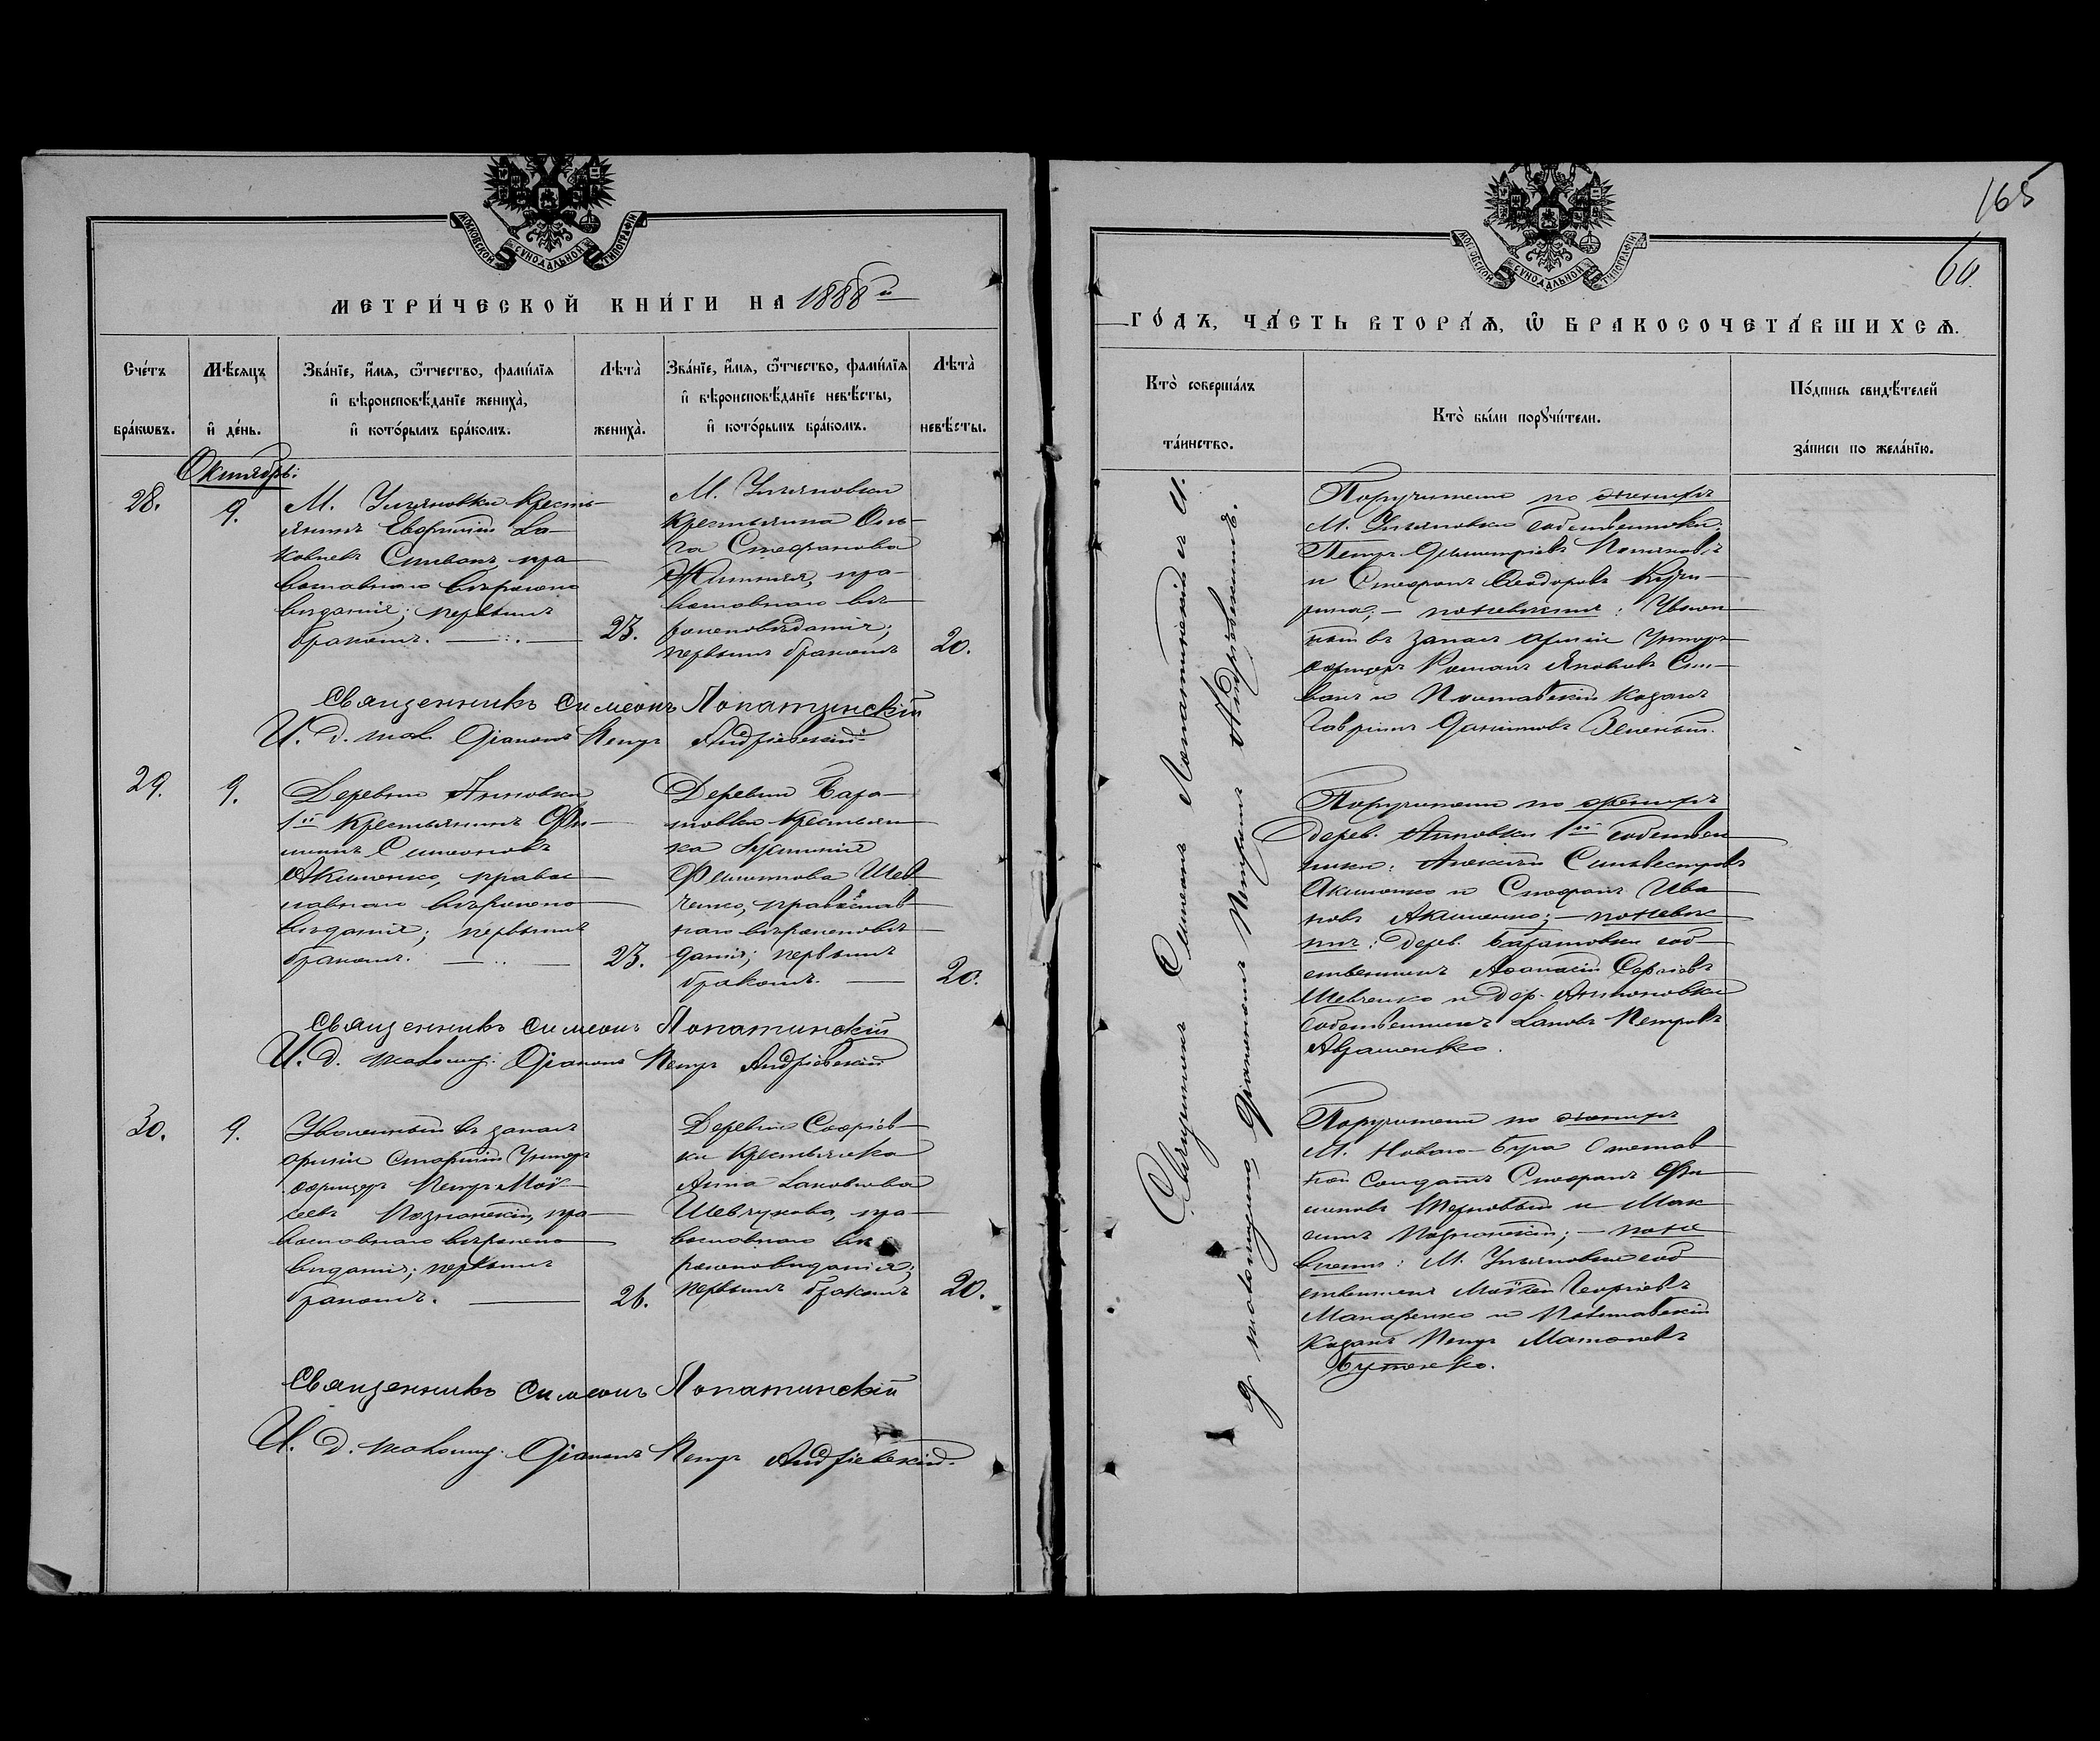 МОСКОВСКОЙ СУНОДАЛЬНОЙ ТИПОГРАФІИ
МЕТРИ́ЧЕСКОЙ КНИ́ГИ НА 1888й
Сче́тъ бра́кѡвъ.
Мѣ́сѧцъ и҆ де́нь.
Зва́нїе, и҆́мѧ, ѻ҆́тчество, фами́лїѧ
и҆ вѣроисповѣ́данїе жениха̀,
и҆ кото́рымъ бра́комъ.
Лѣта̀ жениха̀.
Зва́нїе, и҆́мѧ, ѻ҆́тчество, фами́лїѧ
и҆ вѣроисповѣ́данїе невѣ́сты,
и҆ кото́рымъ бра́комъ.
Лѣта̀ невѣ́сты.
Октябрь:
28.
9.
М. Ульяновки кресть-
янинъ Евфимій Іа-
ковлевъ Сливанъ, пра-
вославнаго вѣроиспо-
вѣданія; первымъ
бракомъ.
23.
М. Ульяновки
крестьянка Оль-
га Стефанова
православнаго вѣ-
роисповѣданія;
первымъ бракомъ
20.
Священникъ Симеонъ Лопатинскій
И. д. псал. Діаконъ Петръ Андріевскій
29.
9.
Деревни Анновки
1й крестьянинъ
Симеоновъ
Акименко, правос-
лавнаго вѣроиспо-
вѣданія; первымъ
бракомъ.
23.
Деревни Бара-
новки крестьян-
ка
Филиппова Шев-
ченко, православ-
наго вѣроисповѣ-
данія; первымъ
бракомъ.
20.
Священникъ Симеонъ Лопатинскій
И. д. псаломщ. Діаконъ Петръ Андріевскій
30.
9.
Уволенный въ запасъ
арміи старшій Унтеръ
офицеръ Петръ Мой-
сеевъ Познанскій, пра-
вославнаго вѣроиспо-
вѣданія; первымъ
бракомъ.
26.
Деревни Софіев-
ки крестьянка
Анна Іаковлева
Шевчукова, пра-
вославнаго вѣ-
роисповѣданія;
первымъ бракомъ
20.
Священникъ Симеонъ Лопатинскій
И. д. псаломщ. Діаконъ Петръ Андріевскій.
165
60.
МОСКОВСКОЙ СУНОДАЛЬНОЙ ТИПОГРАФІИ
ГО́ДЪ, ЧА́СТЬ ВТОРА́Ѧ, Ѡ҆ БРАКОСОЧЕТА́ВШИХСѦ.
Кто̀ соверша́лъ та́инство.
Кто̀ бы́ли порꙋчи́тели.
По́дпись свидѣ́телей за́писи по жела́нїю.
Священникъ Симеонъ Лопатинскій съ И.
д. псаломщика Діакономъ Петромъ Андріевскимъ.
Поручители по женихѣ
М. Ульяновки собственники:
Петръ Димитріевъ
и Стефанъ Ѳеодоровъ
по невѣстѣ: Уволен-
ный въ запасъ арміи Унтеръ-
офицеръ Романъ Яковлевъ Сли-
ванъ и Полтавскій козакъ
Гавріилъ Даниловъ Зеленый.
Поручители по женихѣ
дерев. Анновки 1й собствен-
ники: Алексѣй Сильвестровъ
Акименко и Стефанъ Ива-
новъ Акименко; — по невѣс-
тѣ: дерев. Барановки соб-
ственникъ Аѳанасій Сергіевъ
Шевченко и дер. Антоновки
собственникъ Іаковъ Петровъ
Авраменко.
Поручители по женихѣ
М. Новаго-Буга отстав-
ной солдатъ Стефанъ
Терновый и Мак-
симъ Познанскій; — по не-
вѣстѣ: М. Ульяновки соб-
ственникъ Мойсей Георгіевъ
Макаренко и Полтавскій
козакъ Петръ
Бутенко.